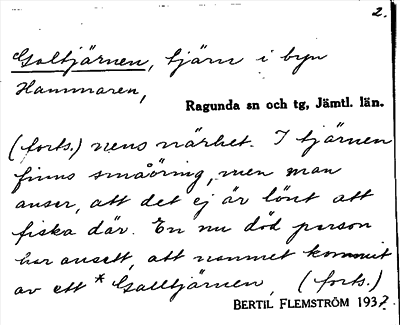 2.
Galtjärnen, tjärn i byn
Hammaren,
Ragunda sn och tg, Jämtl. län.
(forts.) nens närhet. I tjärnen
finns småöring, men man
anser, att det ej är lönt att
fiska där. En nu död person
har ansett, att namnet kommit
av ett * Galltjärnen, (forts.)
BERTIL FLEMSTRÖM 1937.